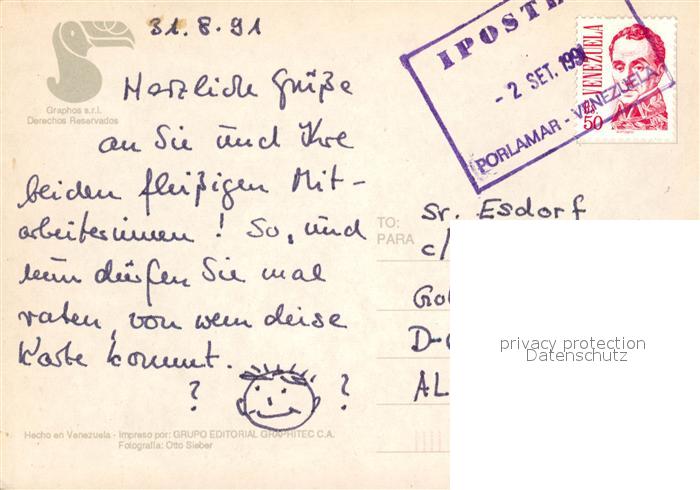 31.8.91
Graphos s.r.l.
Derechos Reservados
Herzliche Grüße
an Sie und Ihre
beiden fleißigen Mit-
arbeiterinnen! So, und
nun dürfen Sie mal
raten, von wem diese
Karte kommt.
? ?
Hecho en Venezuela - Impreso por: GRUPO EDITORIAL GRAPHITEC C.A.
Fotografía: Otto Sieber
IPOSTE
- 2 SET. 1991
PORLAMAR - VENEZUELA
VENEZUELA
50
TO:
PARA
Sr. Esdorf
c/
Go
D-
AL
privacy protection
Datenschutz